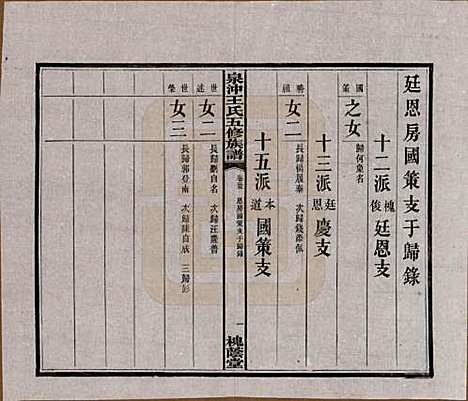 廷恩房國策支于歸錄
十二派槐俊廷恩支
十三派廷恩慶支
國策之女歸何象名
勝祖女二長歸楊履泰 次歸錢添佩
十五派本道國策支
泉沖王氏五修族譜 恩房國策支于歸錄 一 槐蔭堂
世述女二長歸劉自名 次歸汪叢普
世榮女三長歸郭登南 次歸陳自成 三歸彭